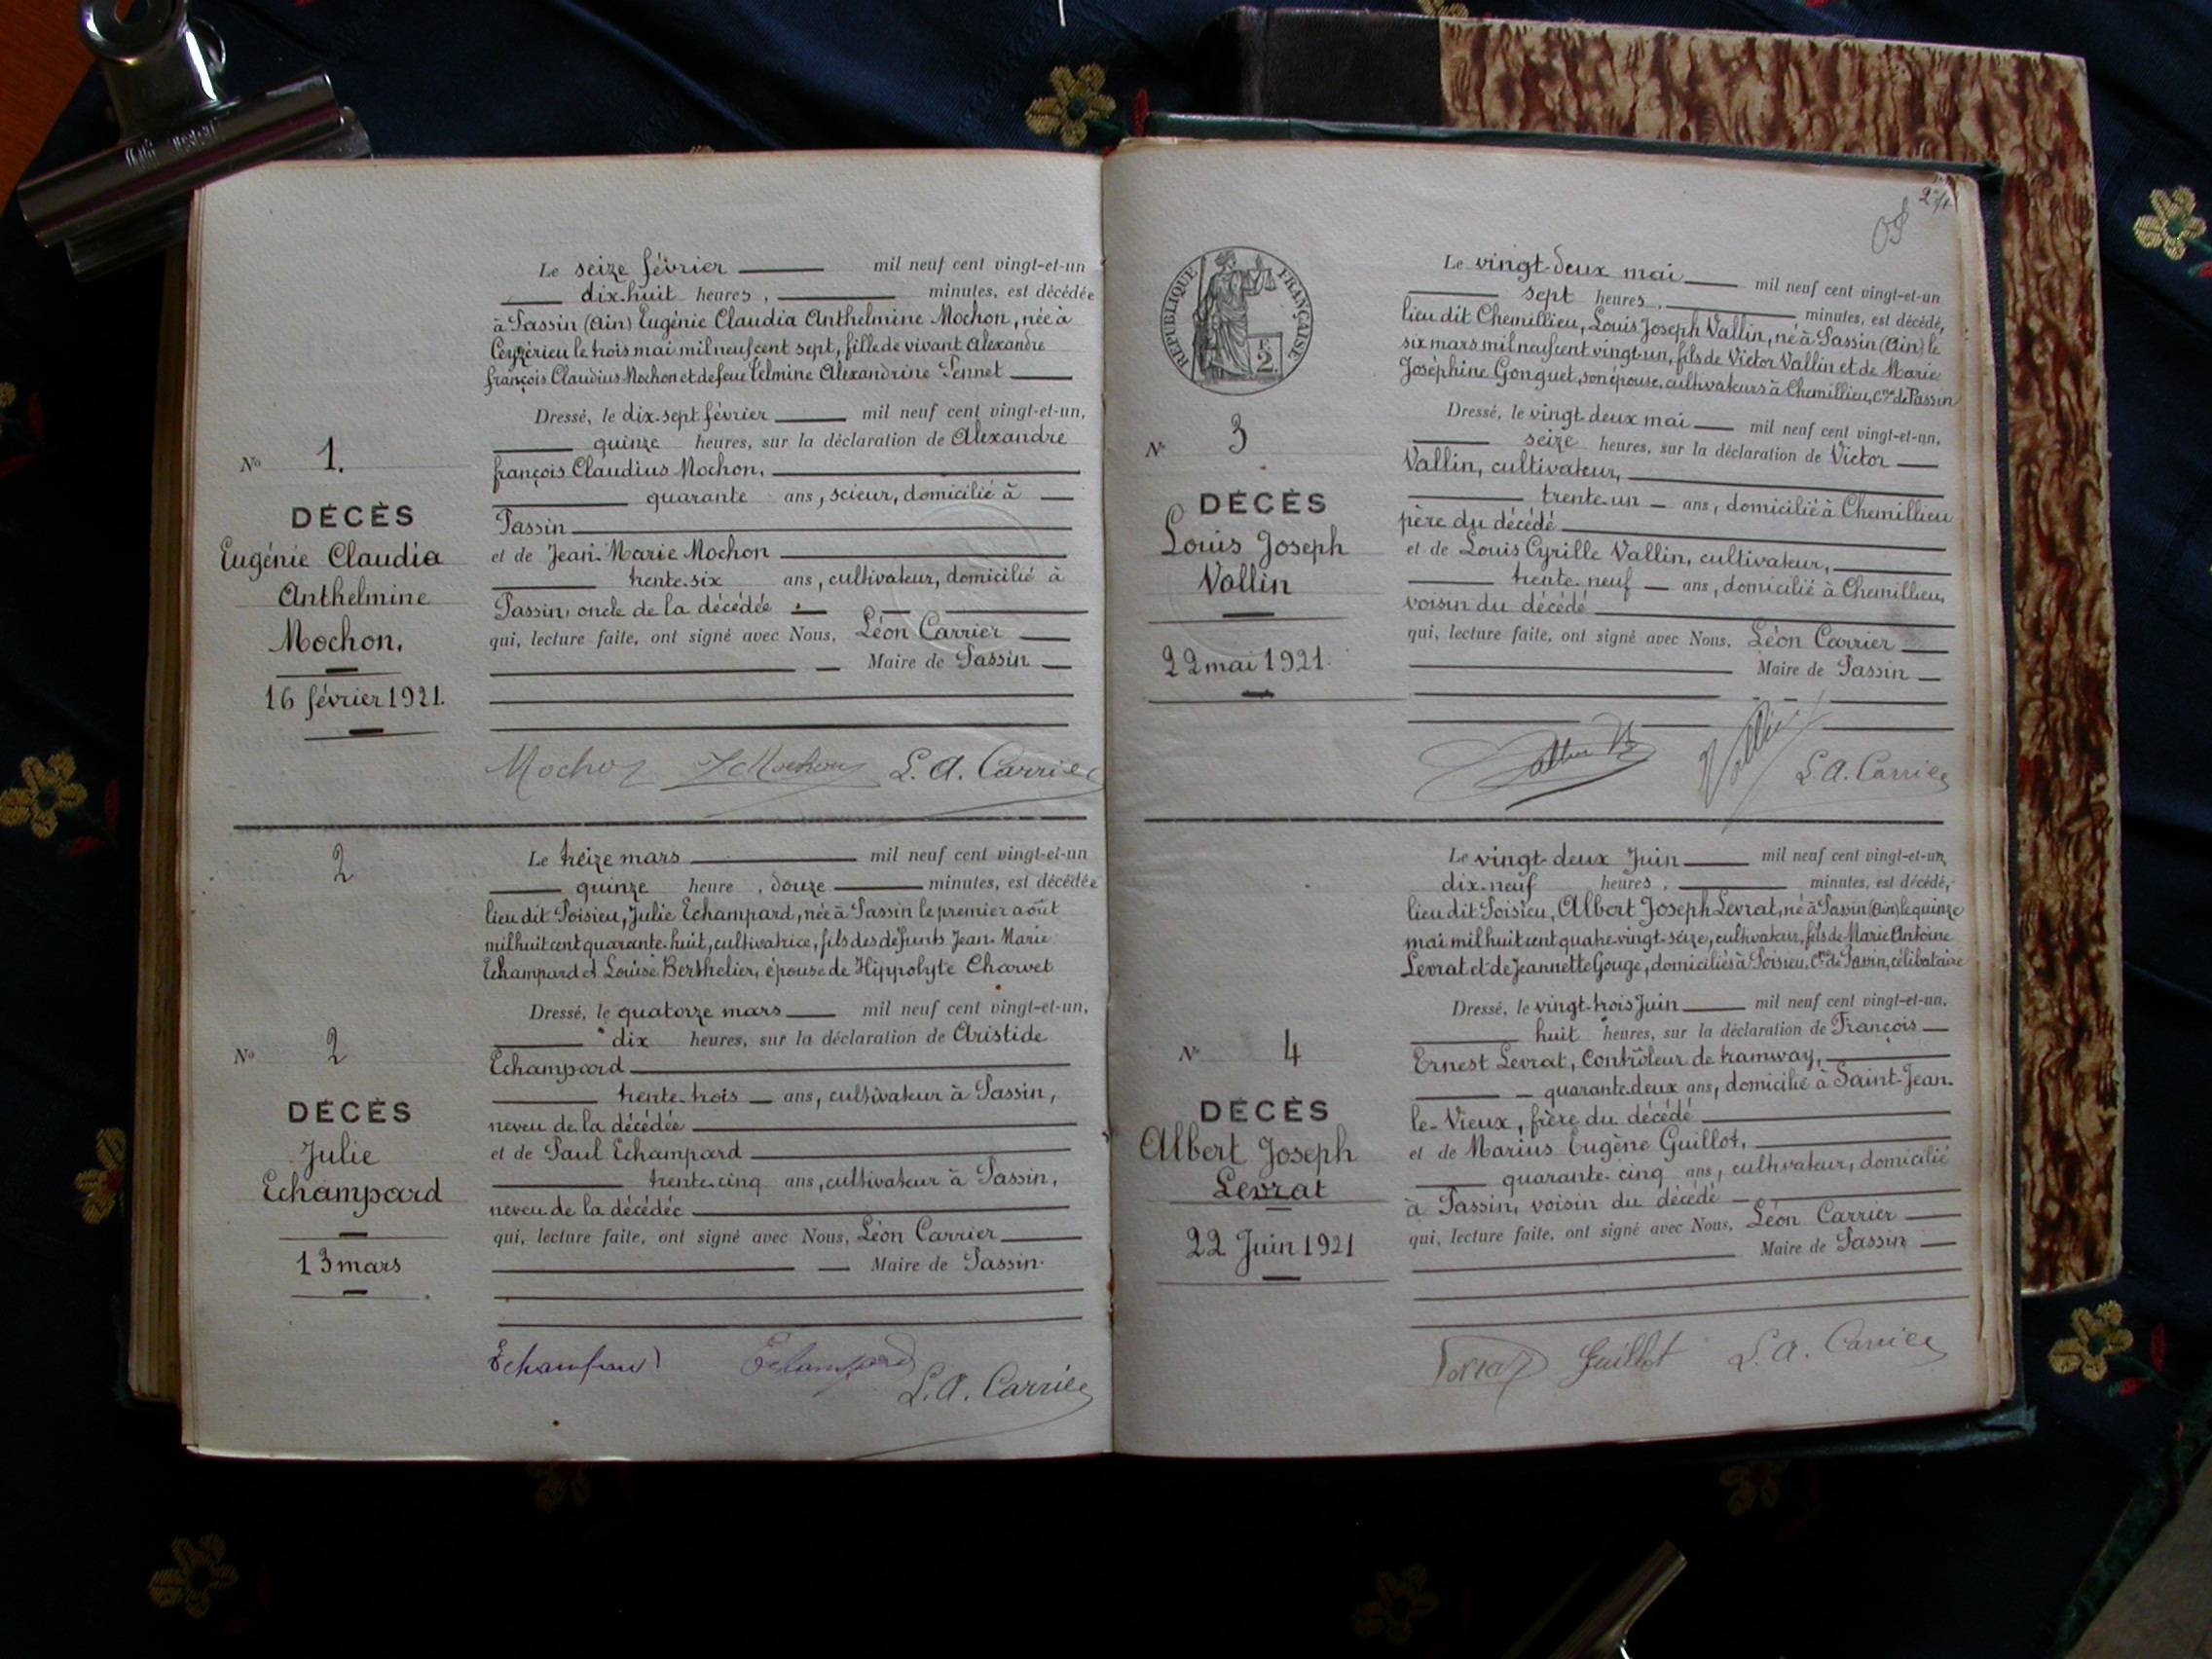 Le seize février mil neuf cent vingt-et-un
dix-huit heures, minutes, est décédée
à Passin (Ain) Eugénie Claudia Anthelmine Mochon, née à
Ceyzérieu le trois mai mil neuf cent sept, fille de vivant Alexandre
françois Claudius Mochon et de feue Telmine Alexandrine Pennet
Dressé, le dix-sept février mil neuf cent vingt-et-un,
quinze heures, sur la déclaration de Alexandre
françois Claudius Mochon,
quarante ans, scieur, domicilié à
Passin
et de Jean-Marie Mochon
trente-six ans, cultivateur, domicilié à
Passin, oncle de la décédée
qui, lecture faite, ont signé avec Nous, Léon Carrier
Maire de Passin
No 1.
DÉCÈS
Eugénie Claudia
Anthelmine
Mochon.
16 février 1921.
Mochon Mochon L. A. Carrier
2
Le treize mars mil neuf cent vingt-et-un
quinze heure, douze minutes, est décédée
lieu dit Poisieu, Julie Echampard, née à Passin le premier août
mil huit cent quarante-huit, cultivatrice, fils des défunts Jean-Marie
Echampard et Louise Berthelier, épouse de Hippolyte Charvet
Dressé, le quatorze mars mil neuf cent vingt-et-un,
dix heures, sur la déclaration de Aristide
Echampard
trente-trois ans, cultivateur à Passin,
neveu de la décédée
et de Paul Echampard
trente-cinq ans, cultivateur à Passin,
neveu de la décédée
qui, lecture faite, ont signé avec Nous, Léon Carrier
Maire de Passin.
No 2
DÉCÈS
Julie
Echampard
13 mars
Echampard Echampard
L. A. Carrier
RÉPUBLIQUE FRANÇAISE
2
Le vingt-deux mai mil neuf cent vingt-et-un
sept heures, minutes, est décédé,
lieu dit Chemillieu, Louis Joseph Vallin, né à Passin (Ain) le
six mars mil neuf cent vingt-un, fils de Victor Vallin et de Marie
Joséphine Gonguet, son épouse, cultivateurs à Chemillieu, Cne de Passin
Dressé, le vingt-deux mai mil neuf cent vingt-et-un,
seize heures, sur la déclaration de Victor
Vallin, cultivateur,
trente-un ans, domicilié à Chemillieu
père du décédé
et de Louis Cyrille Vallin, cultivateur,
trente-neuf ans, domicilié à Chemillieu,
voisin du décédé
qui, lecture faite, ont signé avec Nous, Léon Carrier
Maire de Passin
No 3
DÉCÈS
Louis Joseph
Vallin
22 mai 1921.
Vallin Vallin L. A. Carrier
Le vingt-deux Juin mil neuf cent vingt-et-un,
dix-neuf heures, minutes, est décédé,
lieu dit Poisieu, Albert Joseph Levrat, né à Passin (Ain) le quinze
mai mil huit cent quatre-vingt-seize, cultivateur, fils de Marie Antoine
Levrat et de Jeannette Gouge, domiciliés à Poisieu, Cne de Passin, célibataire
Dressé, le vingt-trois Juin mil neuf cent vingt-et-un,
huit heures, sur la déclaration de François
Ernest Levrat, Contrôleur de tramway,
quarante-deux ans, domicilié à Saint-Jean-
le-Vieux, frère du décédé
et de Marius Eugène Guillot,
quarante-cinq ans, cultivateur, domicilié
à Passin, voisin du décédé
qui, lecture faite, ont signé avec Nous, Léon Carrier
Maire de Passin
No 4
DÉCÈS
Albert Joseph
Levrat
22 Juin 1921
Levrat Guillot L. A. Carrier